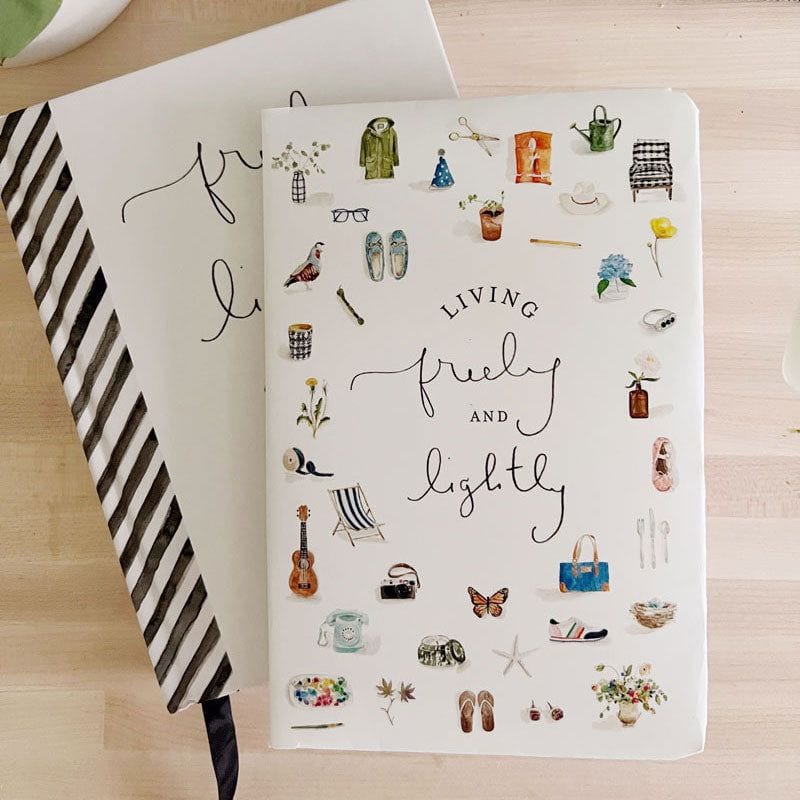 fr
li
LIVING
freely
AND
lightly